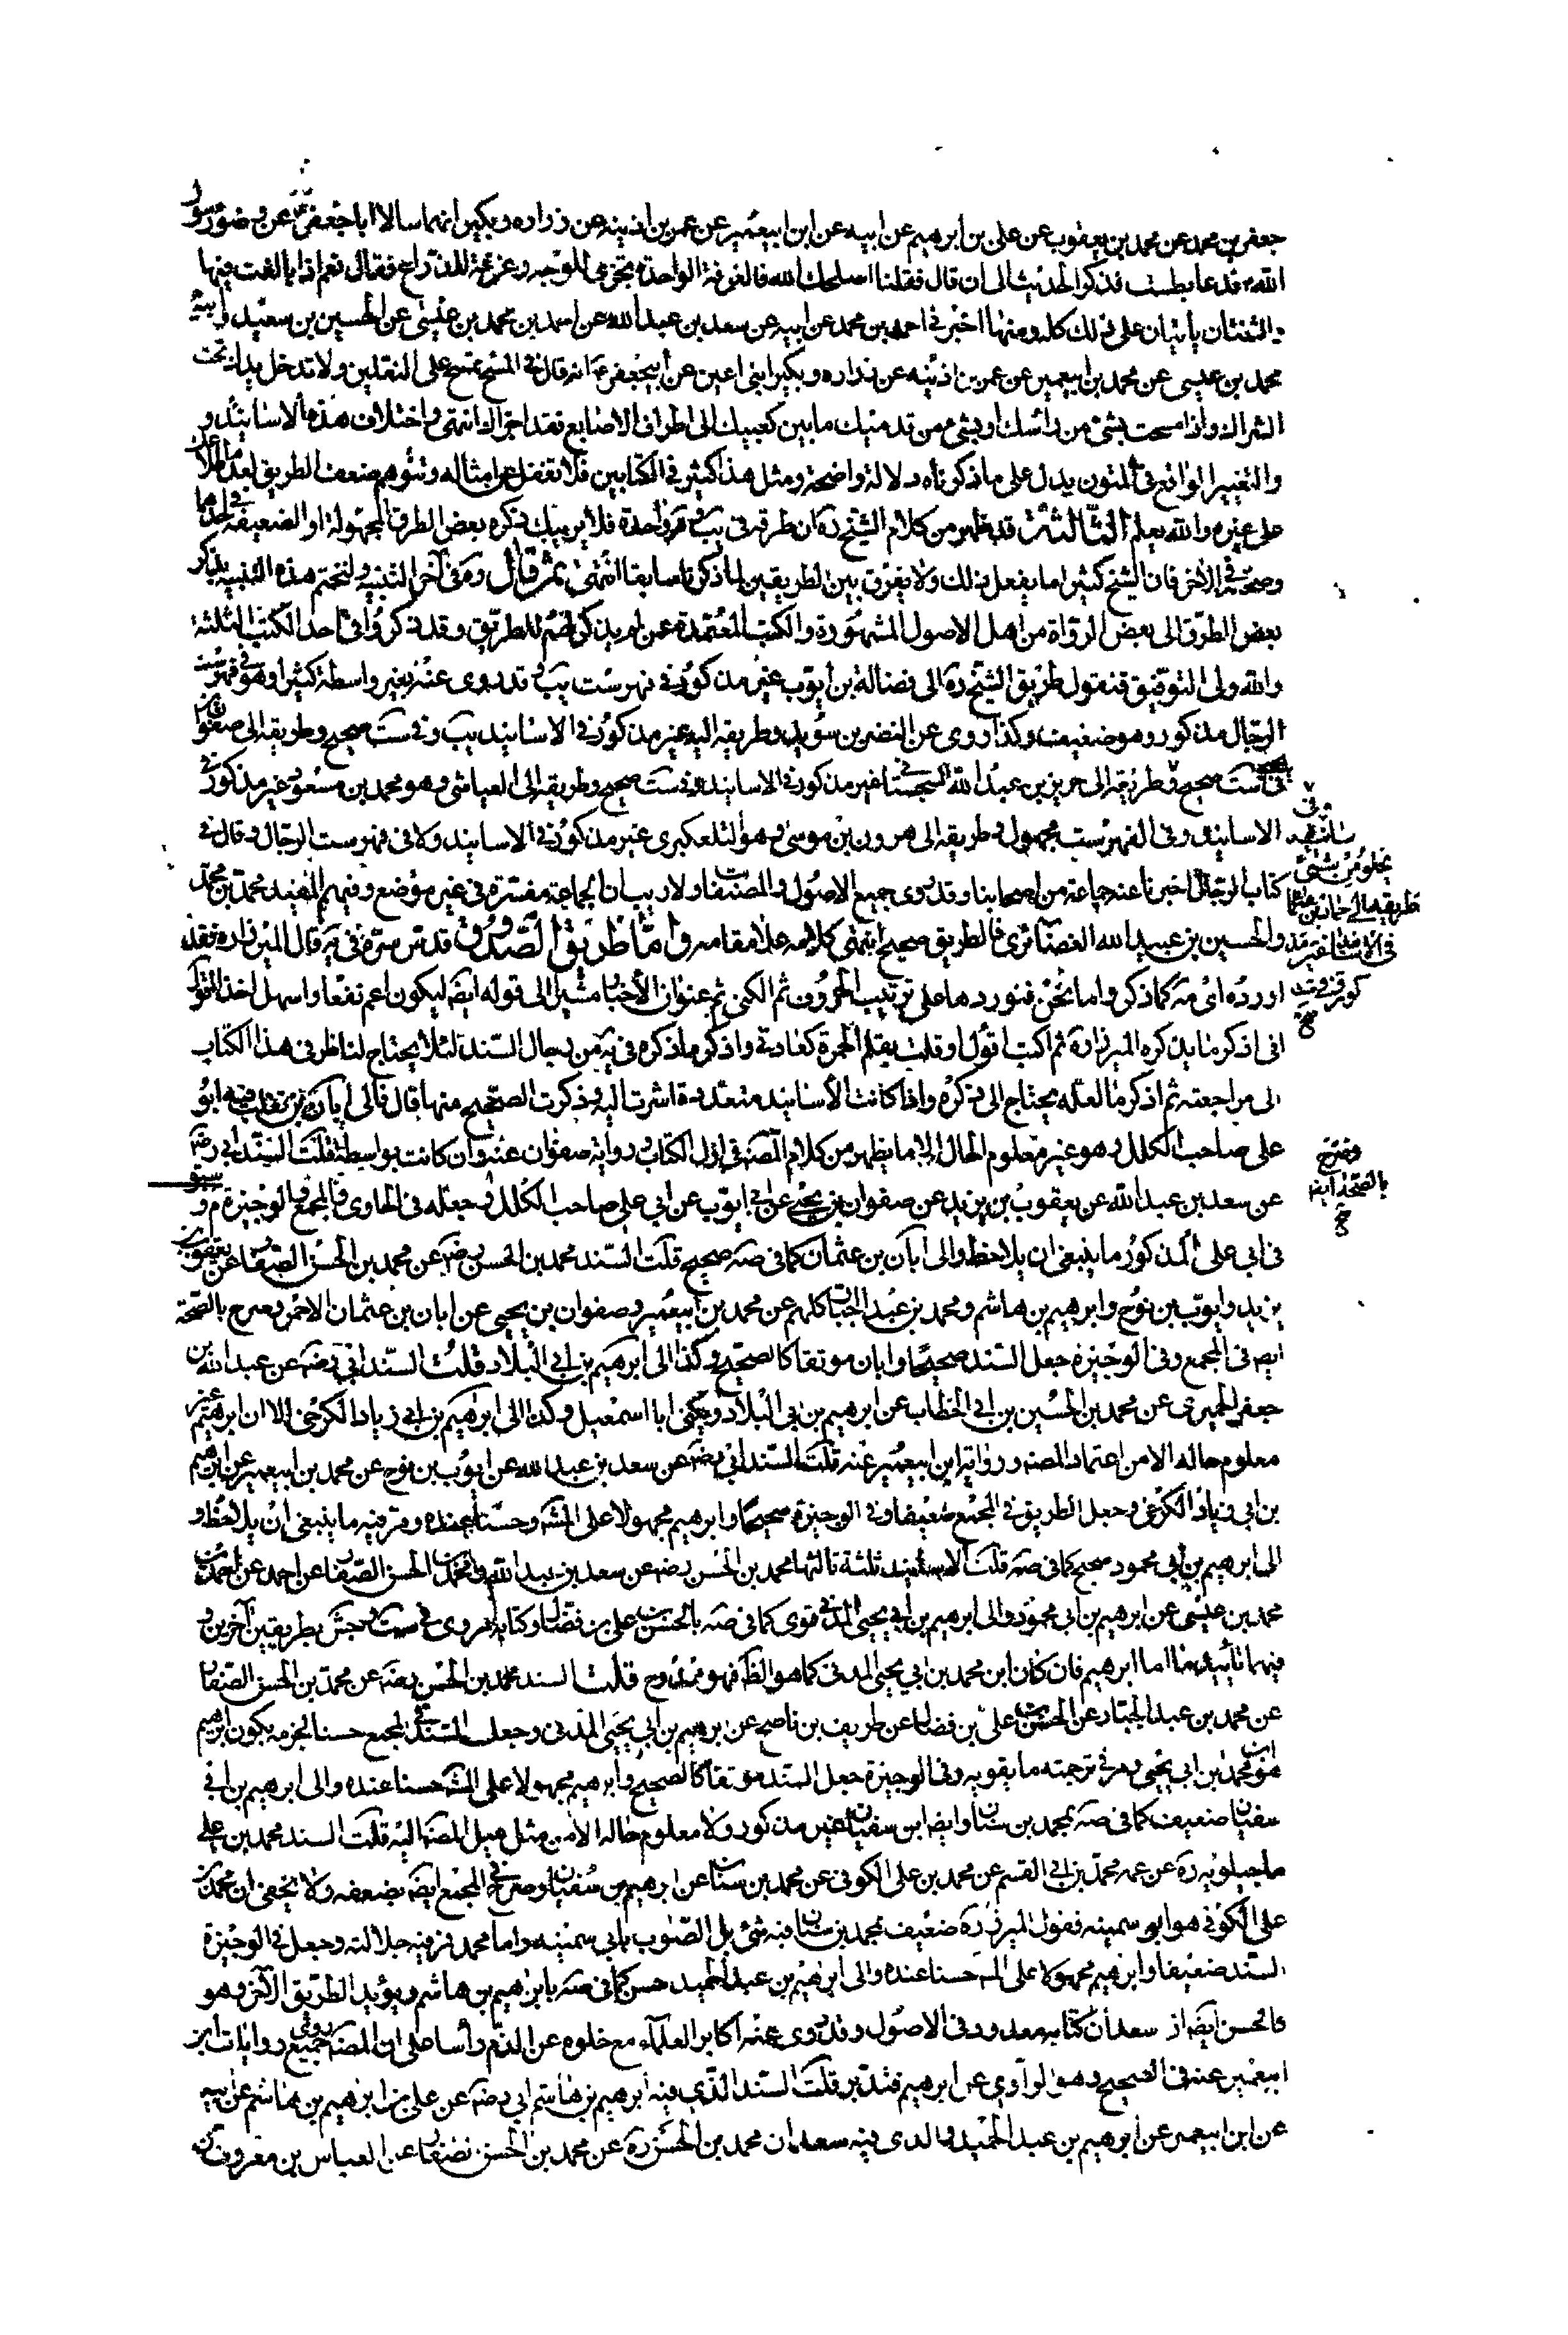 جعفر بن محمد عن محمد بن يعقوب عن على بن ابرهيم عن ابيه عن ابن ابيعمير عن عمر بن اذينه عن زراره وبكير انهما سالا ابا جعفر ع عن وضوء رسول
الله ص فدعا بطست فذكر الحديث الى ان قال فقلنا اصلحك الله فالغرفة الواحدة تجزى للوجه وغرفة للذراع فقال نعم اذا بالغت فيها
والثنتان ياتيان على ذلك كله ومنها اخبرنى احمد بن محمد عن ابيه عن سعد بن عبد الله عن احمد بن محمد بن عيسى عن الحسين بن سعيد وابيه
محمد بن عيسى عن محمد بن ابيعمير عن عمر بن اذينه عن زراره وبكير ابنى اعين عن ابيجعفر ع انه قال فى المسح تمسح على النعلين ولا تدخل يدك تحت
الشراك واذا مسحت بشئ من رأسك او بشئ من قدميك ما بين كعبيك الى اطراف الاصابع فقد اجزاك انتهى واختلاف هذه الاسانيد و
والتغيير الواقع فى المتون يدل على ما ذكرناه دلالة واضحة ومثل هذا كثير فى الكتابين فلا تغفل عن امثاله وتتوهم ضعف الطريق لعدم
على غيره والله يعلم الثالثة قد ظهر من كلام الشيخ ره ان طرقه فى يب و واحدة فلا يريبك ذكره بعض الطرق المجهولة او الضعيفة فى احدهما
وصحته فى الاخر فان الشيخ كثيرا ما يفعل ذلك ولا يفرق بين الطريقين لما ذكرنا سابقا انتهى ثم قال و فى آخر التنبيه ولنختم هذه التنبيه بذكر
بعض الطرق الى بعض الرواة من اهل الاصول المشهورة والكتب المعتمدة عن لم يذكر لهم للطريق وقد ذكروا فى احد الكتب الثلثة
والله ولى التوفيق فنقول طريق الشيخ ره الى فضالة بن ايوب غير مذكور فى فهرست يب وقد روى عنه بغير واسطة كثيرا وهو فى فهرست
الرجال مذكور وهو ضعيف وكذا روى عن النضر بن سويد وطريقه اليه غير مذكور فى الاسانيد يب وفى ست صحيح وطريقه الى صفوان
فى ست صحيح وطريقه الى حريز بن عبد الله السجستانى غير مذكور فى الاسانيد وفى ست صحيح وطريقه الى العياشى وهو محمد بن مسعود غير مذكور فى
الاسانيد وفى الفهرست مجهول وطريقه الى هرون بن موسى وهو التلعكبرى غير مذكور فى الاسانيد ولا فى فهرست الرجال وقال فى
كتاب الرجال اخبرنا عنه جماعة من اصحابنا وقد روى جميع الاصول والمصنفات ولا ريب ان الجماعة مفسرة فى غير موضع وفيهم المفيد محمد بن محمد
والحسين بن عبيد الله الغضائرى فالطريق صحيح انتهى كلامه علا مقامه واما طريق الصدوق قدس سره فى يه قال الميرزا ره فقد
اورده اى مه كما ذكر واما نحن فنوردها على ترتيب الحروف ثم الكنى ثم عنوان الاخبار مشيرا الى قوله ايضا ليكون اعم نفعا واسهل اخذا
انى اذكر ما يذكره الميرزا ره ثم اكتب اقول او قلت بقلم الحمرة كعادتى واذكر ما ذكره فى يه من رجال السند لئلا يحتاج لناظر فى هذا الكتاب
الى مراجعته ثم اذكر ما لعله يحتاج الى ذكره واذا كانت الاسانيد متعددة اشرت اليه وذكرت الصحيح منها قال فالى ابان بن تغلب فيه ابو
على صاحب الكلل وهو غير معلوم الحال الا ما يظهر من كلام المصنف فى اول الكتاب و رواية صفوان عنه وان كانت بواسطة قلت السند ابى رضه
عن سعد بن عبد الله عن يعقوب بن يزيد عن صفوان بن يحيى عن ابى ايوب عن ابى على صاحب الكلل وجعله فى الحاوى والمجمع والوجيزة م و
فى ابى على المذكور ما ينبغى ان يلاحظ والى ابان بن عثمان كما فى صه صحيح قلت السند محمد بن الحسن رضه عن محمد بن الحسن الصفار عن يعقوب بن
يزيد وايوب بن نوح وابرهيم بن هاشم ومحمد بن عبد الجبار كلهم عن محمد بن ابيعمير وصفوان بن يحيى عن ابان بن عثمان الاحمر وصرح بالصحة
ايضا فى المجمع وفى الوجيزة جعل السند صحيحا وابان موثقا كالصحيح وكذا الى ابرهيم بن ابى البلاد قلت السند ابى رضه عن عبد الله بن
جعفر الحميرى عن محمد بن الحسين بن ابى الخطاب عن ابرهيم بن ابى البلاد ويكنى ابا اسمعيل وكذا الى ابرهيم بن ابى زياد الكرخى الا ان ابرهيم غير
معلوم حاله الا من اعتماد المصنف ورواية ابن ابيعمير عنه قلت السند ابى رضه عن سعد بن عبد الله عن ايوب بن نوح عن محمد بن ابيعمير عن ابرهيم
بن ابى زياد الكرخى وجعل الطريق فى المجمع ضعيفا وفى الوجيزة صحيحا وابرهيم مجهولا على المشه وحسنا عنده ومر فيه ما ينبغى ان يلاحظ و
الى ابرهيم بن ابى محمود صحيح كما فى صه قلت الاسانيد ثلثة ثالثها محمد بن الحسن رضه عن سعد بن عبد الله ومحمد بن الحسن الصفار عن احمد
محمد بن عيسى عن ابرهيم بن ابى محمود والى ابرهيم بن ابى يحيى المدنى قوى كما فى صه بالحسن بن على بن فضال وكتابه مروى فى ست وجش بطريقين آخرين و
فيهما تأييد هنا اما ابرهيم فان كان ابن محمد بن ابى يحيى المدنى كما هو الظ فهو ممدوح قلت السند محمد بن الحسن رضه عن محمد بن الحسن الصفار
عن محمد بن عبد الجبار عن الحسن بن على بن فضال عن طريف بن ناصح عن ابرهيم بن ابى يحيى المدنى وجعل السند فى المجمع حسنا لجزمه بكون ابرهيم
هو ابن محمد بن ابى يحيى ومر فى ترجمته ما يقويه وفى الوجيزة جعل السند موثقا كالصحيح وابرهيم مجهولا على المشه حسنا عنده والى ابرهيم بن ابى
سفيان ضعيف كما فى صه بمحمد بن سنان وايضا ابن سفيان غير مذكور ولا معلوم حاله الا من مثل ميل المصنف اليه قلت السند محمد بن على
ماجيلويه ره عن عمه محمد بن ابى القسم عن محمد بن على الكوفى عن محمد بن سنان عن ابرهيم بن سفيان وصرح فى المجمع ايضا بضعفه ولا يخفى ان محمد بن
على الكوفى هو ابو سمينه فقول الميرزا ره ضعيف بمحمد بن سنان فيه شئ بل الصواب بابى سمينه واما محمد فمر فيه جلالته وجعل فى الوجيزة
السند ضعيفا وابرهيم مجهولا على المشه حسنا عنده والى ابرهيم بن عبد الحميد حسن كما فى صه بابرهيم بن هاشم ويؤيد الطريق الآخر وهو
كالحسن ايضا از سعدان كتابه معدود فى الاصول وقد روى عنه اكابر العلماء مع خلوه عن الذم رأسا على ان المصنف روى جميع روايات ابن
ابيعمير عنه فى الصحيح وهو الراوى عن ابرهيم فتدبر قلت السند الذى فيه ابرهيم بن هاشم ابى رضه عن على بن ابرهيم بن هاشم عن ابيه
عن ابن ابيعمير عن ابرهيم بن عبد الحميد والذى فيه سعدان محمد بن الحسن ره عن محمد بن الحسن الصفار عن العباس بن معروف عن
يخلو من شئ
طريقه الى
فى الاسانيد غير مذ
كور وفى
صح
وصرح
بالصحة ايضا
صح